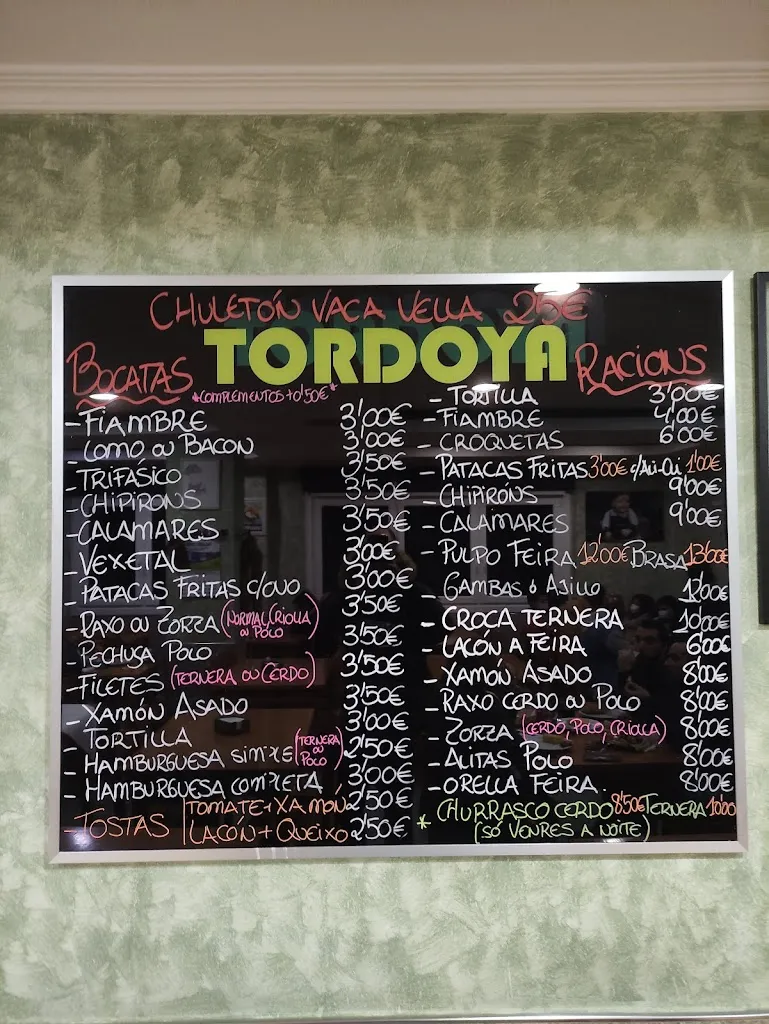 CHULETÓN VACA VELLA 25€
TORDOYA
BOCATAS
*COMPLEMENTOS +0'50€*
- FIAMBRE 3'00€
- LOMO OU BACON 3'00€
- TRIFÁSICO 3'50€
- CHIPIRONS 3'50€
- CALAMARES 3'50€
- VEXETAL 3'00€
- PATACAS FRITAS C/OVO 3'00€
- RAXO OU ZORZA (NORMAL, CRIOLLA OU POLO) 3'50€
- PECHUGA POLO 3'50€
- FILETES (TERNERA OU CERDO) 3'50€
- XAMÓN ASADO 3'50€
- TORTILLA 3'00€
- HAMBURGUESA SIMPLE (TERNERA OU POLO) 2'50€
- HAMBURGUESA COMPLETA 3'00€
- TOSTAS TOMATE+XAMÓN 2'50€
LACÓN+QUEIXO 2'50€
RACIONS
- TORTILLA 3'00€
- FIAMBRE 4'00€
- CROQUETAS 6'00€
- PATACAS FRITAS 3'00€ C/ALI-OLI 1'00€
- CHIPIRONS 9'00€
- CALAMARES 9'00€
- PULPO FEIRA 12'00€ BRASA 13'00€
- GAMBAS Ó AJILLO 12'00€
- CROCA TERNERA 10'00€
- LACÓN A FEIRA 6'00€
- XAMÓN ASADO 8'00€
- RAXO CERDO OU POLO 8'00€
- ZORZA (CERDO, POLO, CRIOLLA) 8'00€
- ALITAS POLO 8'00€
- ORELLA FEIRA 8'00€
* CHURRASCO CERDO 8'50€ TERNERA 10'00
(SÓ VENRES A NOITE)